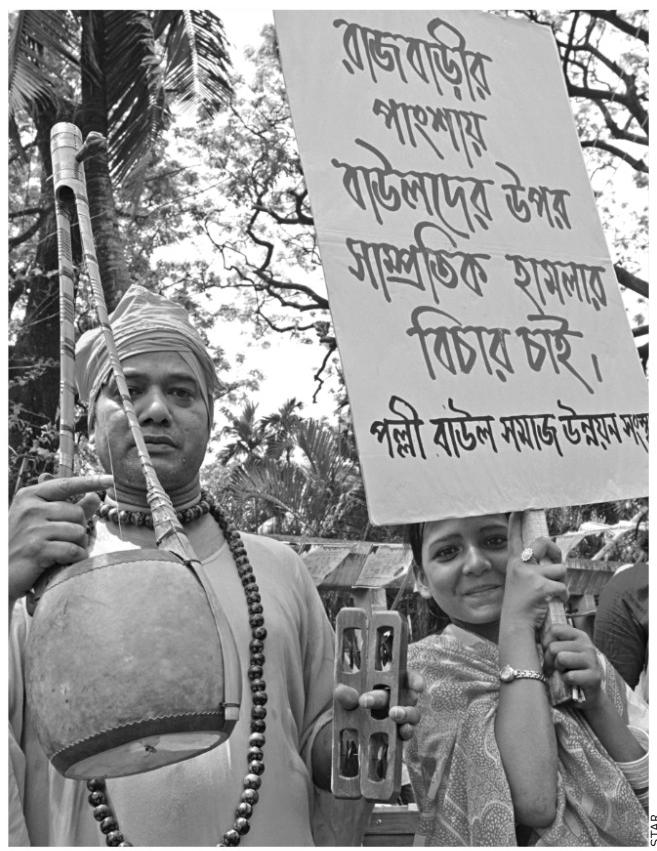 রাজবাড়ীর
পাংশায়
বাউলদের উপর
সাম্প্রতিক হামলার
বিচার চাই।
পল্লী বাউল সমাজ উন্নয়ন
STAR